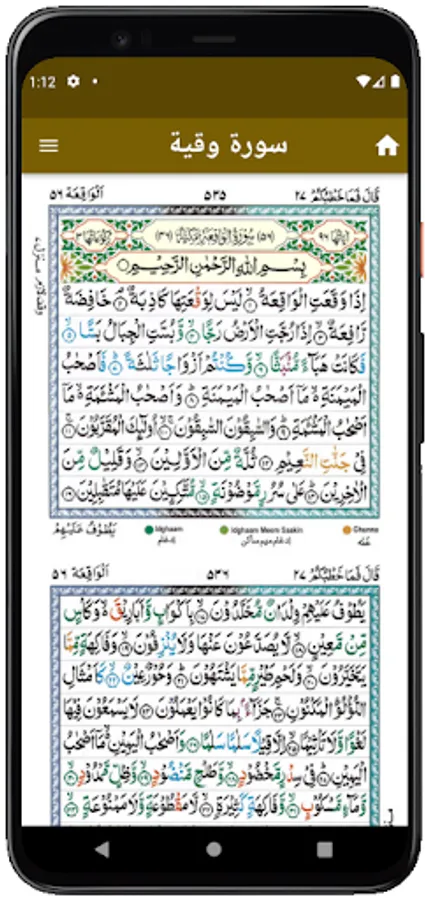 1:12
سورة وقية
قَالَ فَمَا خَطْبُكُمْ ٢٧ ٥٣٥ اَلْوَاقِعَة ٥٦
اٰيَاتُهَا ٩٦ (٥٦) سُوْرَةُ الْوَاقِعَةِ مَكِّيَّةٌ (٤٦) رُكُوْعَاتُهَا ٣
بِسْمِ اللّٰهِ الرَّحْمٰنِ الرَّحِيْمِ
اِذَا وَقَعَتِ الْوَاقِعَةُ ۝١ لَيْسَ لِوَقْعَتِهَا كَاذِبَةٌ ۝٢ خَافِضَةٌ
رَّافِعَةٌ ۝٣ اِذَا رُجَّتِ الْاَرْضُ رَجًّا ۝٤ وَّبُسَّتِ الْجِبَالُ بَسًّا ۝٥
فَكَانَتْ هَبَآءً مُّنْۢبَثًّا ۝٦ وَّكُنْتُمْ اَزْوَاجًا ثَلٰثَةً ۝٧ فَاَصْحٰبُ
الْمَيْمَنَةِ ۙ مَاۤ اَصْحٰبُ الْمَيْمَنَةِ ۝٨ وَاَصْحٰبُ الْمَشْـَٔمَةِ ۙ مَاۤ
اَصْحٰبُ الْمَشْـَٔمَةِ ۝٩ وَالسّٰبِقُوْنَ السّٰبِقُوْنَ ۝١٠ اُولٰٓئِكَ الْمُقَرَّبُوْنَ ۝١١
فِيْ جَنّٰتِ النَّعِيْمِ ۝١٢ ثُلَّةٌ مِّنَ الْاَوَّلِيْنَ ۝١٣ وَقَلِيْلٌ مِّنَ
الْاٰخِرِيْنَ ۝١٤ عَلٰى سُرُرٍ مَّوْضُوْنَةٍ ۝١٥ مُّتَّكِـِٕيْنَ عَلَيْهَا مُتَقٰبِلِيْنَ ۝١٦
Idghaam ادغام Idghaam Meem Saakin ادغام میم ساکن Ghunna غنّہ يَطُوْفُ عَلَيْهِمْ
قَالَ فَمَا خَطْبُكُمْ ٢٧ ٥٣٦ اَلْوَاقِعَة ٥٦
يَطُوْفُ عَلَيْهِمْ وِلْدَانٌ مُّخَلَّدُوْنَ ۝١٧ بِاَكْوَابٍ وَّاَبَارِيْقَ ۙ وَكَاْسٍ
مِّنْ مَّعِيْنٍ ۝١٨ لَّا يُصَدَّعُوْنَ عَنْهَا وَلَا يُنْزِفُوْنَ ۝١٩ وَفَاكِهَةٍ مِّمَّا
يَتَخَيَّرُوْنَ ۝٢٠ وَلَحْمِ طَيْرٍ مِّمَّا يَشْتَهُوْنَ ۝٢١ وَحُوْرٌ عِيْنٌ ۝٢٢ كَاَمْثَالِ
اللُّؤْلُؤِ الْمَكْنُوْنِ ۝٢٣ جَزَآءًۢ بِمَا كَانُوْا يَعْمَلُوْنَ ۝٢٤ لَا يَسْمَعُوْنَ فِيْهَا
لَغْوًا وَّلَا تَاْثِيْمًا ۝٢٥ اِلَّا قِيْلًا سَلٰمًا سَلٰمًا ۝٢٦ وَاَصْحٰبُ الْيَمِيْنِ ۙ مَاۤ اَصْحٰبُ
الْيَمِيْنِ ۝٢٧ فِيْ سِدْرٍ مَّخْضُوْدٍ ۝٢٨ وَّطَلْحٍ مَّنْضُوْدٍ ۝٢٩ وَّظِلٍّ مَّمْدُوْدٍ ۝٣٠
وَّمَآءٍ مَّسْكُوْبٍ ۝٣١ وَّفَاكِهَةٍ كَثِيْرَةٍ ۝٣٢ لَّا مَقْطُوْعَةٍ وَّلَا مَمْنُوْعَةٍ ۝٣٣